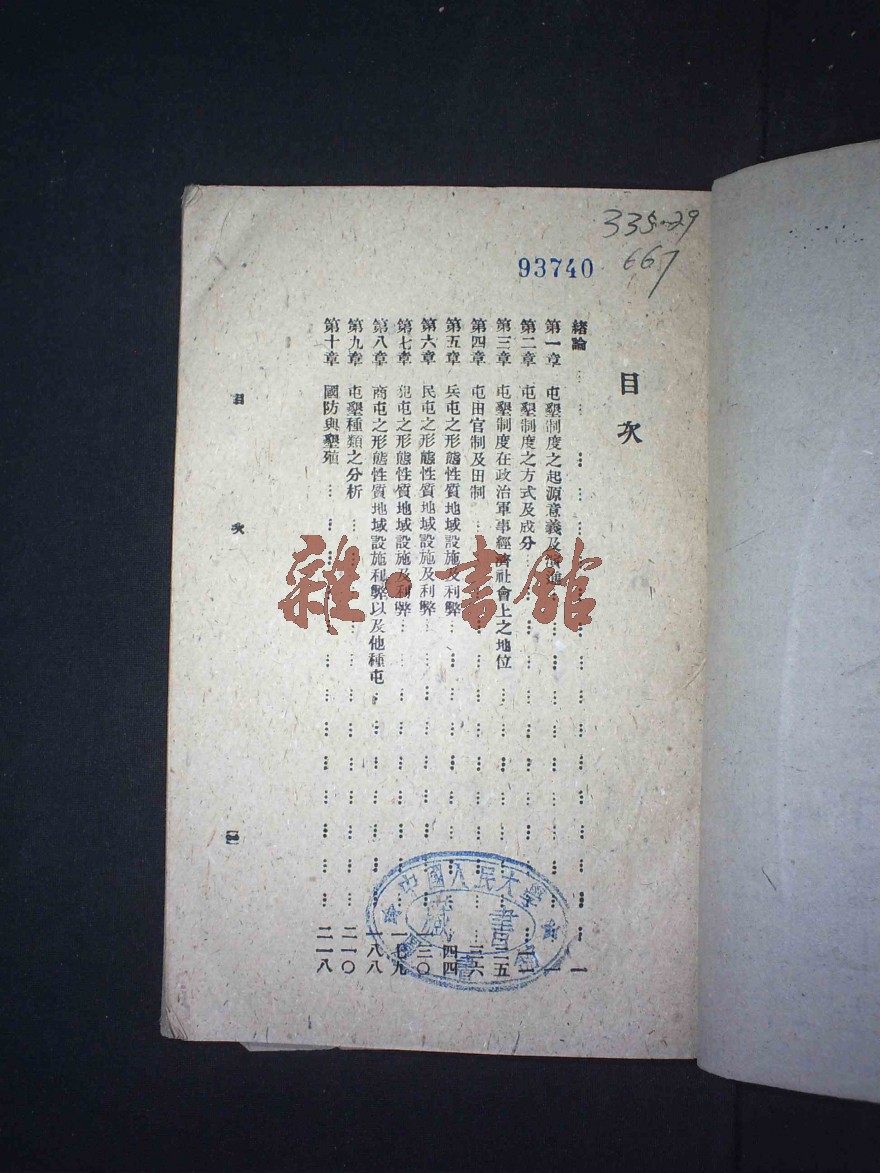 335-29
667
93740
目次
緒論 一
第一章 屯墾制度之起源意義及演進 一
第二章 屯墾制度之方式及成分
第三章 屯墾制度在政治軍事經濟社會上之地位
第四章 屯田官制及田制
第五章 兵屯之形態性質地域設施及利弊 四四
第六章 民屯之形態性質地域設施及利弊 一三〇
第七章 犯屯之形態性質地域設施及利弊 一七九
第八章 商屯之形態性質地域設施利弊以及他種屯 一八八
第九章 屯墾種類之分析 二一〇
第十章 國防與墾殖 二一八
目次
雜·書館
中國人民大學
藏書